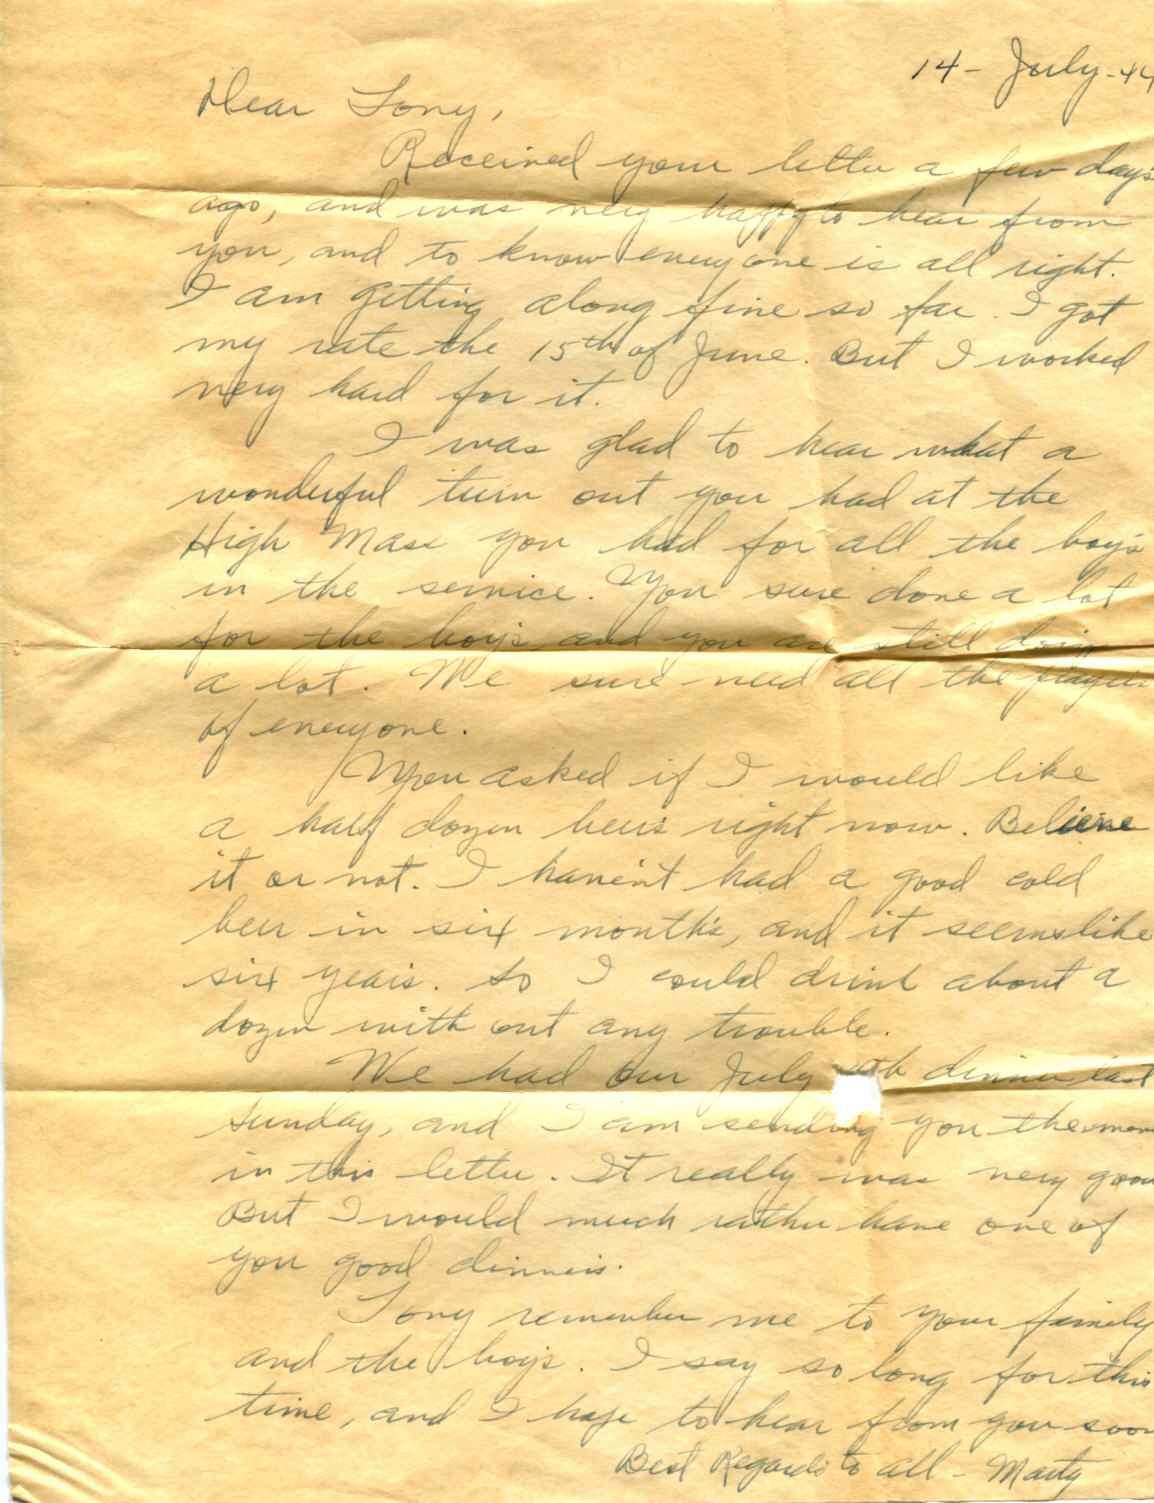 14 - July - 44
Dear Tony,
Received your letter a few day's
ago, and was very happy to hear from
you, and to know everyone is all right.
I am getting along fine so far. I got
my rate the 15th of June. But I worked
very hard for it.
I was glad to hear what a
wonderful turn out you had at the
High Mass you had for all the boy's
in the service. You sure done a lot
for the boy's and you are still doing
a lot. We sure need all the prayers
of everyone.
You asked if I would like
a half dozen beers right now. Believe
it or not. I haven't had a good cold
beer in six month's, and it seems like
six years. So I could drink about a
dozen with out any trouble.
We had our July dinner last
Sunday, and I am sending you the
in this letter. It really was very good
But I would much rather have one of
you good dinners.
Tony remember me to your family
and the boy's. I say so long for this
time, and I hope to hear from you soon
Best Regards to all - Marty